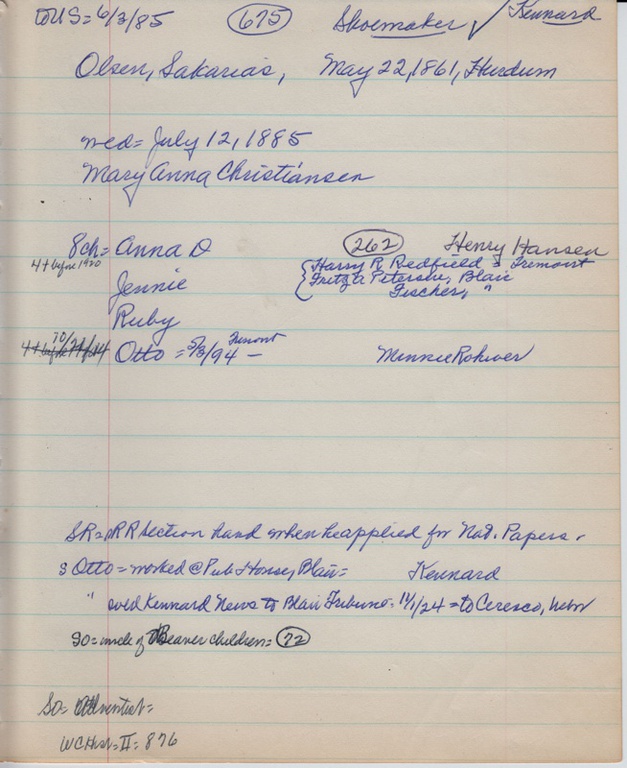 to US = 6/3/85 675 Shoemaker √ Kennard
Olsen, Sakarias, May 22, 1861, Hurdum
med = July 12, 1885
Mary Anna Christiansen
8 ch = Anna D 262 Henry Hansen
4 + before 1920 Harry R Redfield = Fremont
Jennie Fritz a Petersen, Blair
Fischer, "
Ruby
70/ Otto = 5/3/94 - Fremont Minnie Rohwer
SR = RR Section hand when he applied for Nat. Papers.
s Otto = worked @ Pub House, Blair = Kennard
" sold Kennard News to Blair Tribune = 11/1/24 = to Ceresco, Nebr
SO = uncle of Beaver children = 72
SO =
WC Hist = II = 876